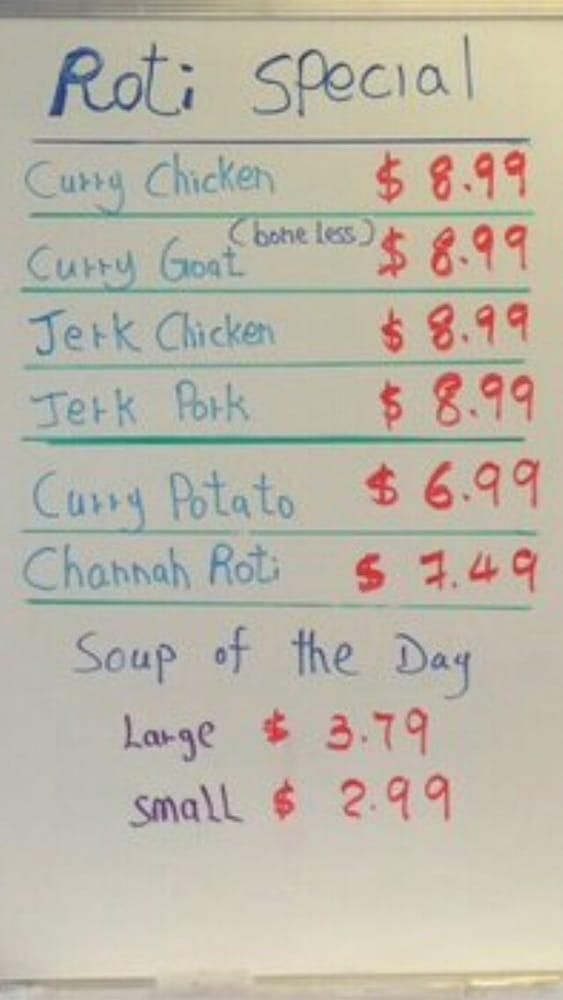 Roti Special
Curry Chicken $ 8.99
Curry Goat (boneless) $ 8.99
Jerk Chicken $ 8.99
Jerk Pork $ 8.99
Curry Potato $ 6.99
Channah Roti $ 7.49
Soup of the Day
Large $ 3.79
Small $ 2.99